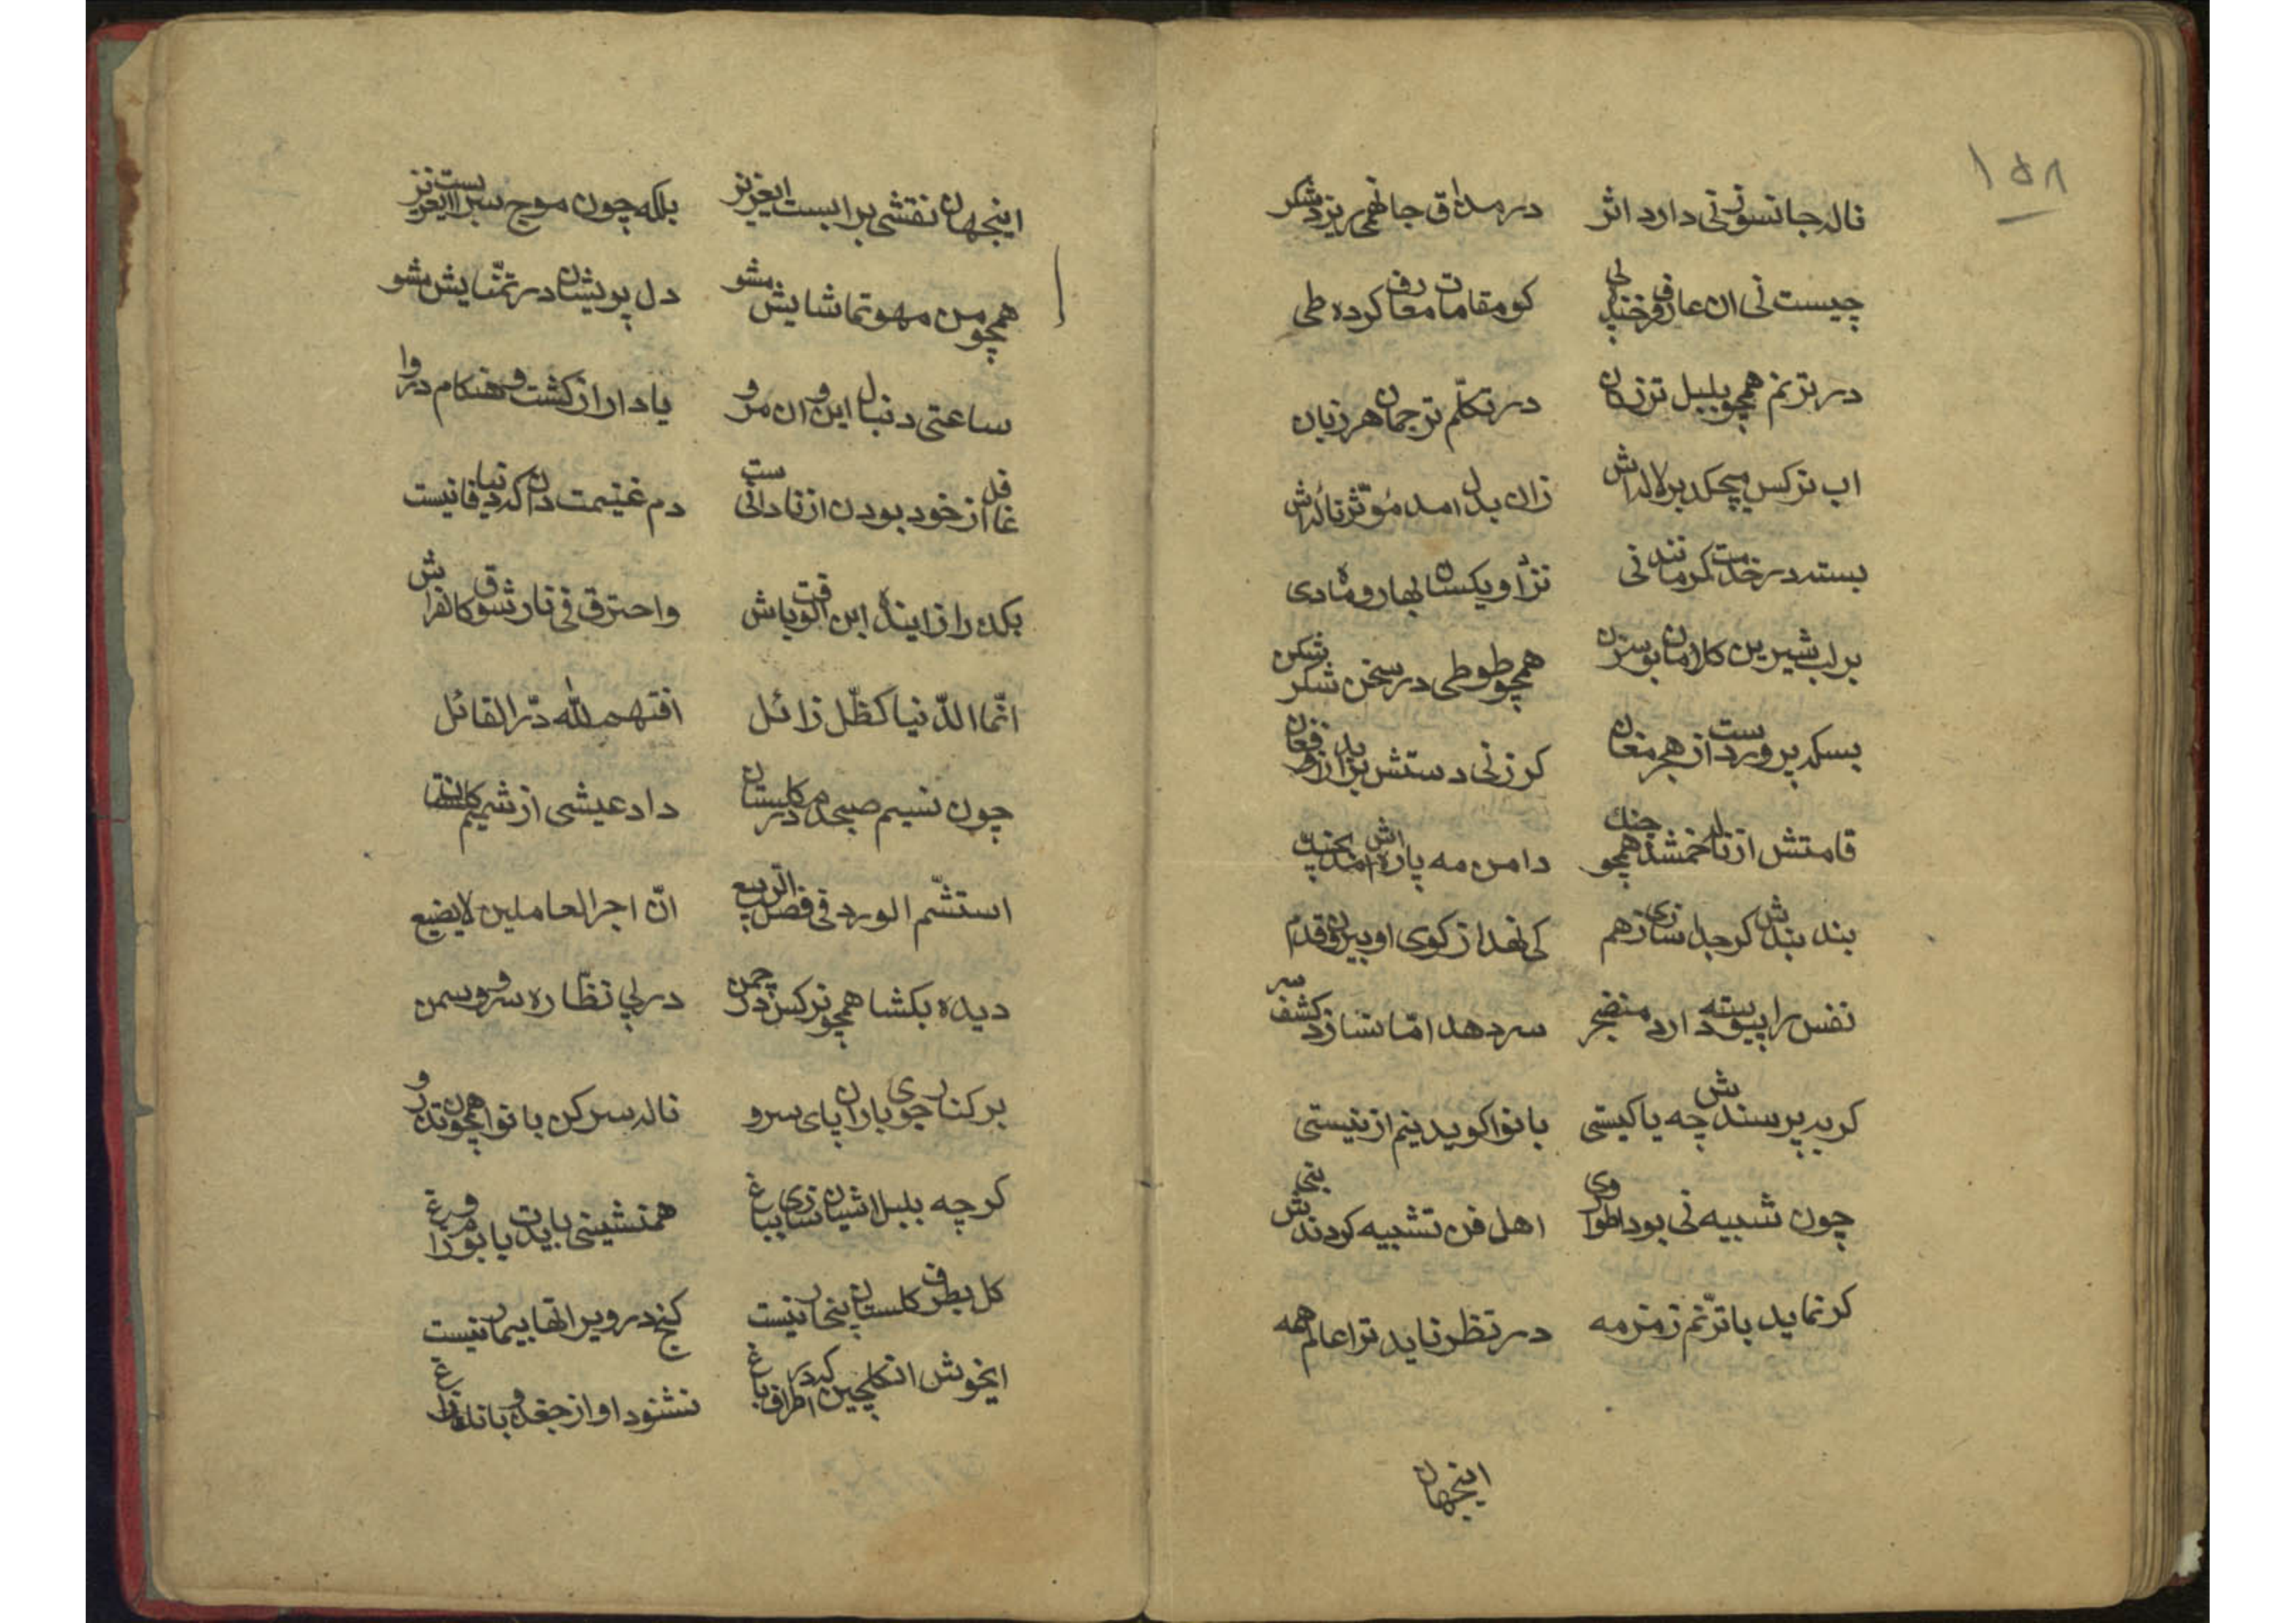 ۱۵۸
ناله جانسوز نی دارد اثر در مذاق جان همی ریزد شکر
چیست نی ان عارف فرخنده پی کو مقامات معارف کرده طی
در ترنم همچو بلبل تر زبان در تکلّم ترجمان هر زبان
اب نرکس میچکد بر لاله اش زان بدل امد مؤثّر ناله اش
بسته در خدمت کمر مانند نی نزد او یکسان بهار و ماه دی
بر لب شیرین کلامان بوسه زن همچو طوطی در سخن شکر شکن
بسکه پر دردست از هجر مغان کر زنی دستش براید زو فغان
قامتش از ناله خم شد همچو چنك دامن مه پاره اش امد بچنك
بند بندش کر جدا سازی ز هم کی نهد از کوی او بیرون قدم
نفس را پیوسته دارد منضجر سر دهد امّا نسازد کشف سر
کر بپرسندش چه یا کیستی با نوا کوید نیم از نیستی
چون شبیه نی بود اطوار وی اهل فن تشبیه کردندش بنی
کر نماید با ترّنم زمزمه در نظر ناید ترا عالم همه
اینجهان
اینجهان نقشی برابست ایعزیز بلکه چون موج سرابست ایعزیز
همچو من مهو تماشایش مشو دل پریشان در تمنّایش مشو
ساعتی دنبال این و ان مرو یاد دار از کشت و هنکام درو
غافل از خود بودن از نادانی ست دم غنیمت دان که دنیا فانیست
بکذر از اینده ابن الوقت باش واحترق فی نار شوق کالفراش
انّما الدّنیا کظّل زائل افتهم للّه درّ القائل
چون نسیم صبحدم در کلستان داد عیشی از شمیم کل ستان
استشّم الورد فی فصل الرّبیع انّ اجر العاملین لا یضیع
دیده بکشا همچو نرکس در چمن در پی نظّاره سرو و سمن
بر کنار جوی باران پای سرو ناله سر کن با نوا همچون تذرو
کر چه بلبل اشیان سازی بباغ همنشینی بایدت با بوم و زاغ
کل بطرف کلستان بیخار نیست کنج در ویرانها بیمار نیست
ایخوش ان کلچین که در اطراف باغ نشنود اواز جغد و بانك زاغ